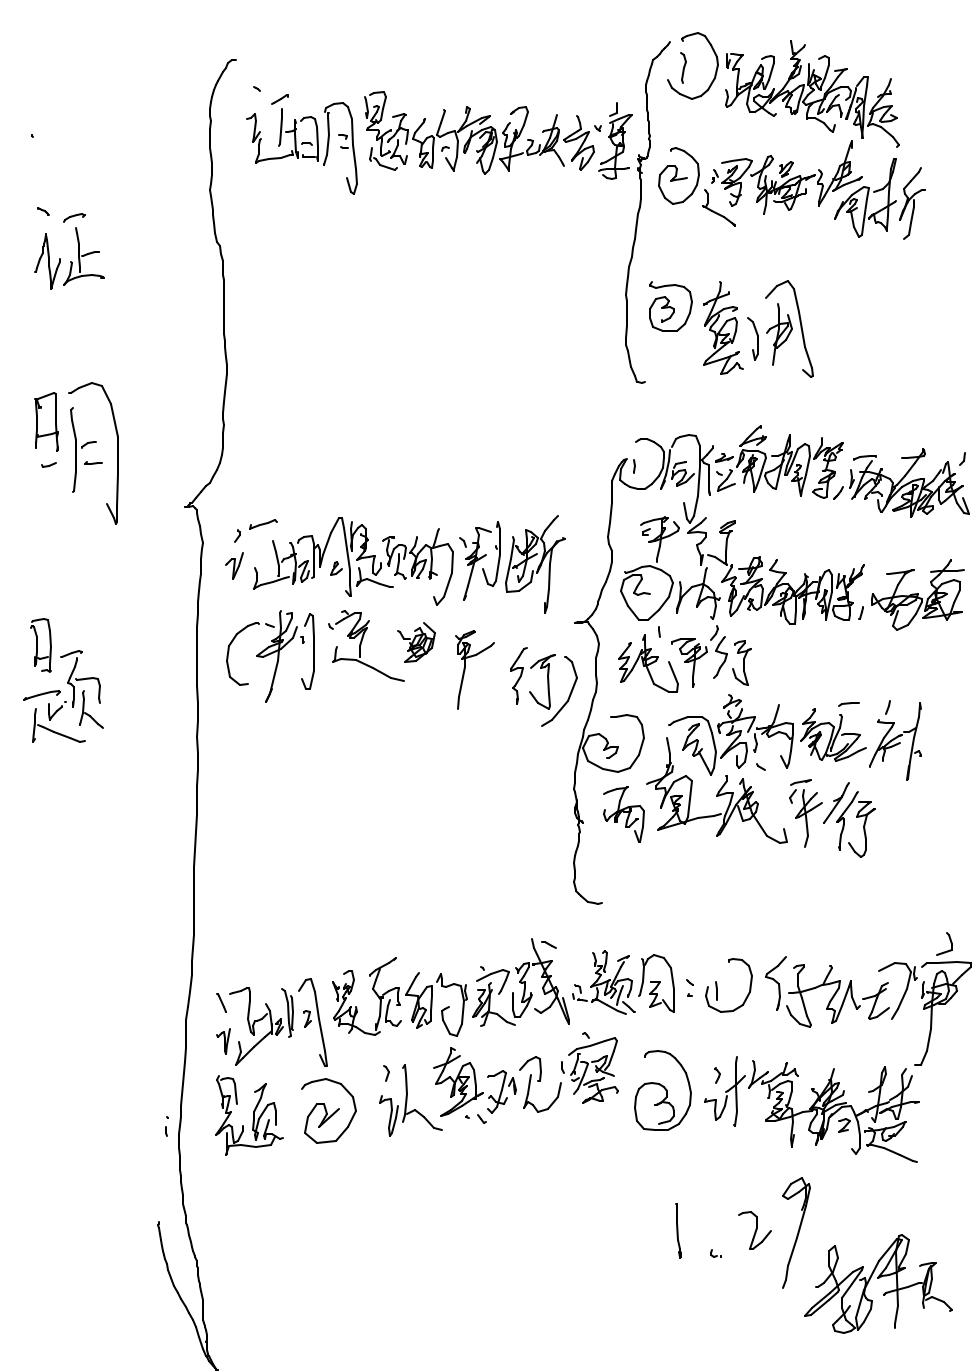 证明题
证明题的解决方案
①跟着题目走
②逻辑清析
③真用
证明题的判断
(判定 平行)
①同位角相等,两直线
平行
②内错角相等,两直
线平行
③同旁内角互补
两直线平行
证明题的实践题目:①仔细审
题②认真观察③计算清楚
1.29